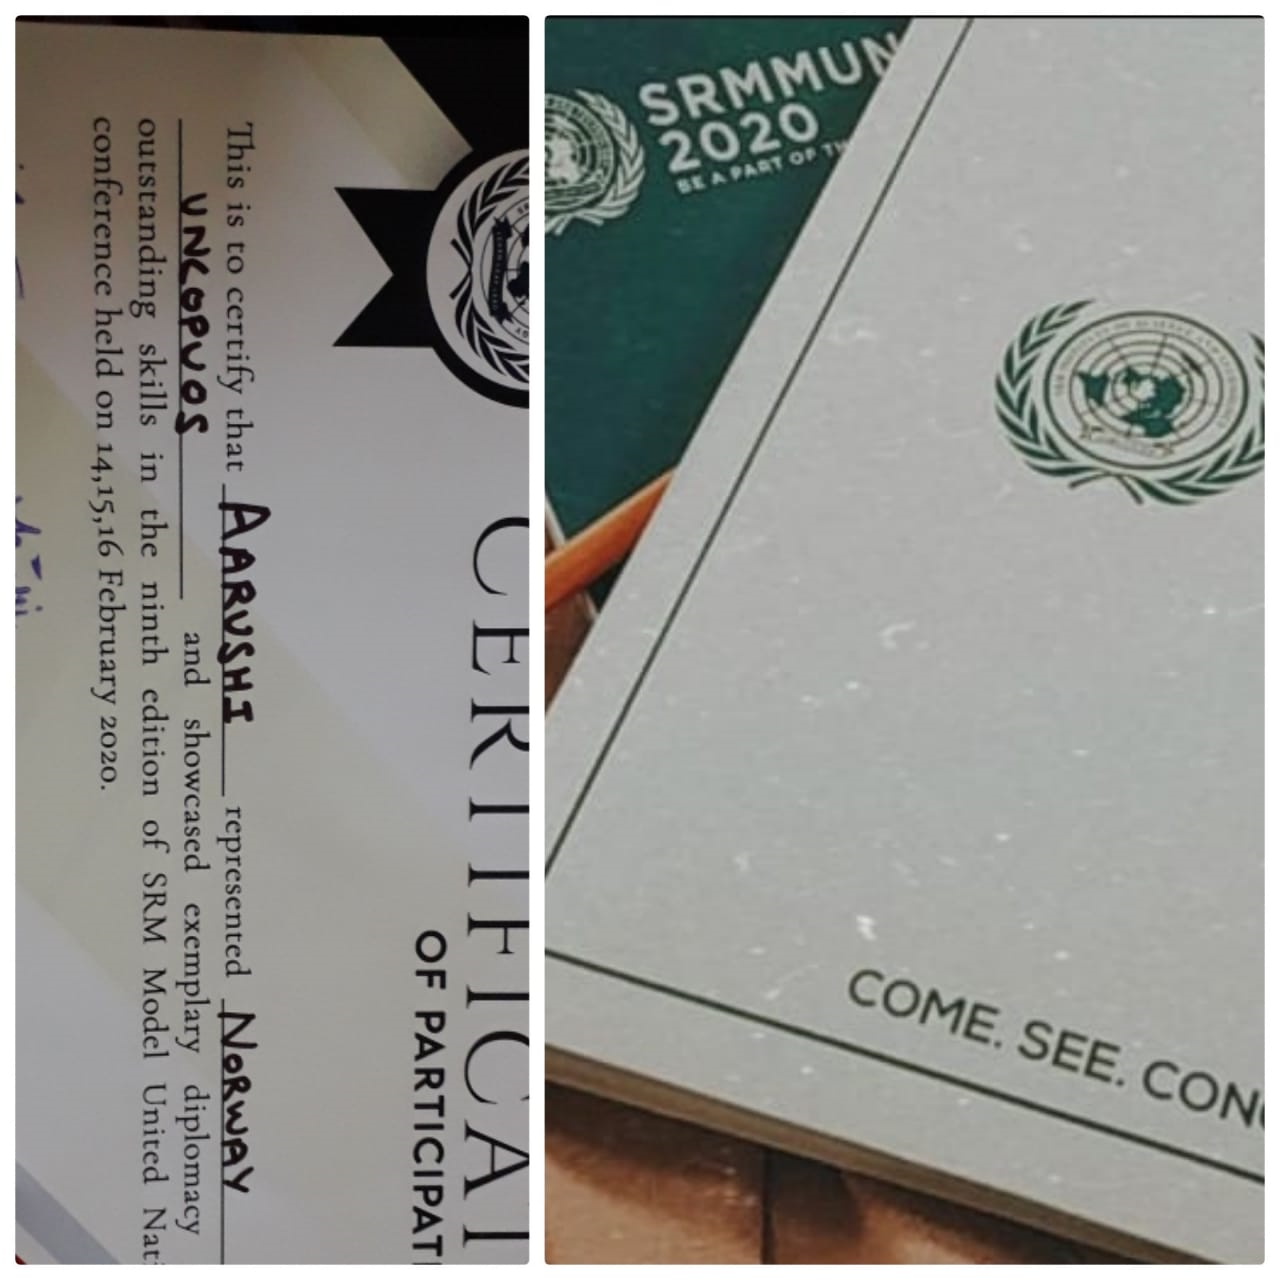 CERTIFICAT
OF PARTICIPATI
This is to certify that AARUSHI represented NORWAY
UNCOPUOS and showcased exemplary diplomacy
outstanding skills in the ninth edition of SRM Model United Nati
conference held on 14,15,16 February 2020.
SRMMUN
2020
BE A PART OF TH
COME. SEE. CON